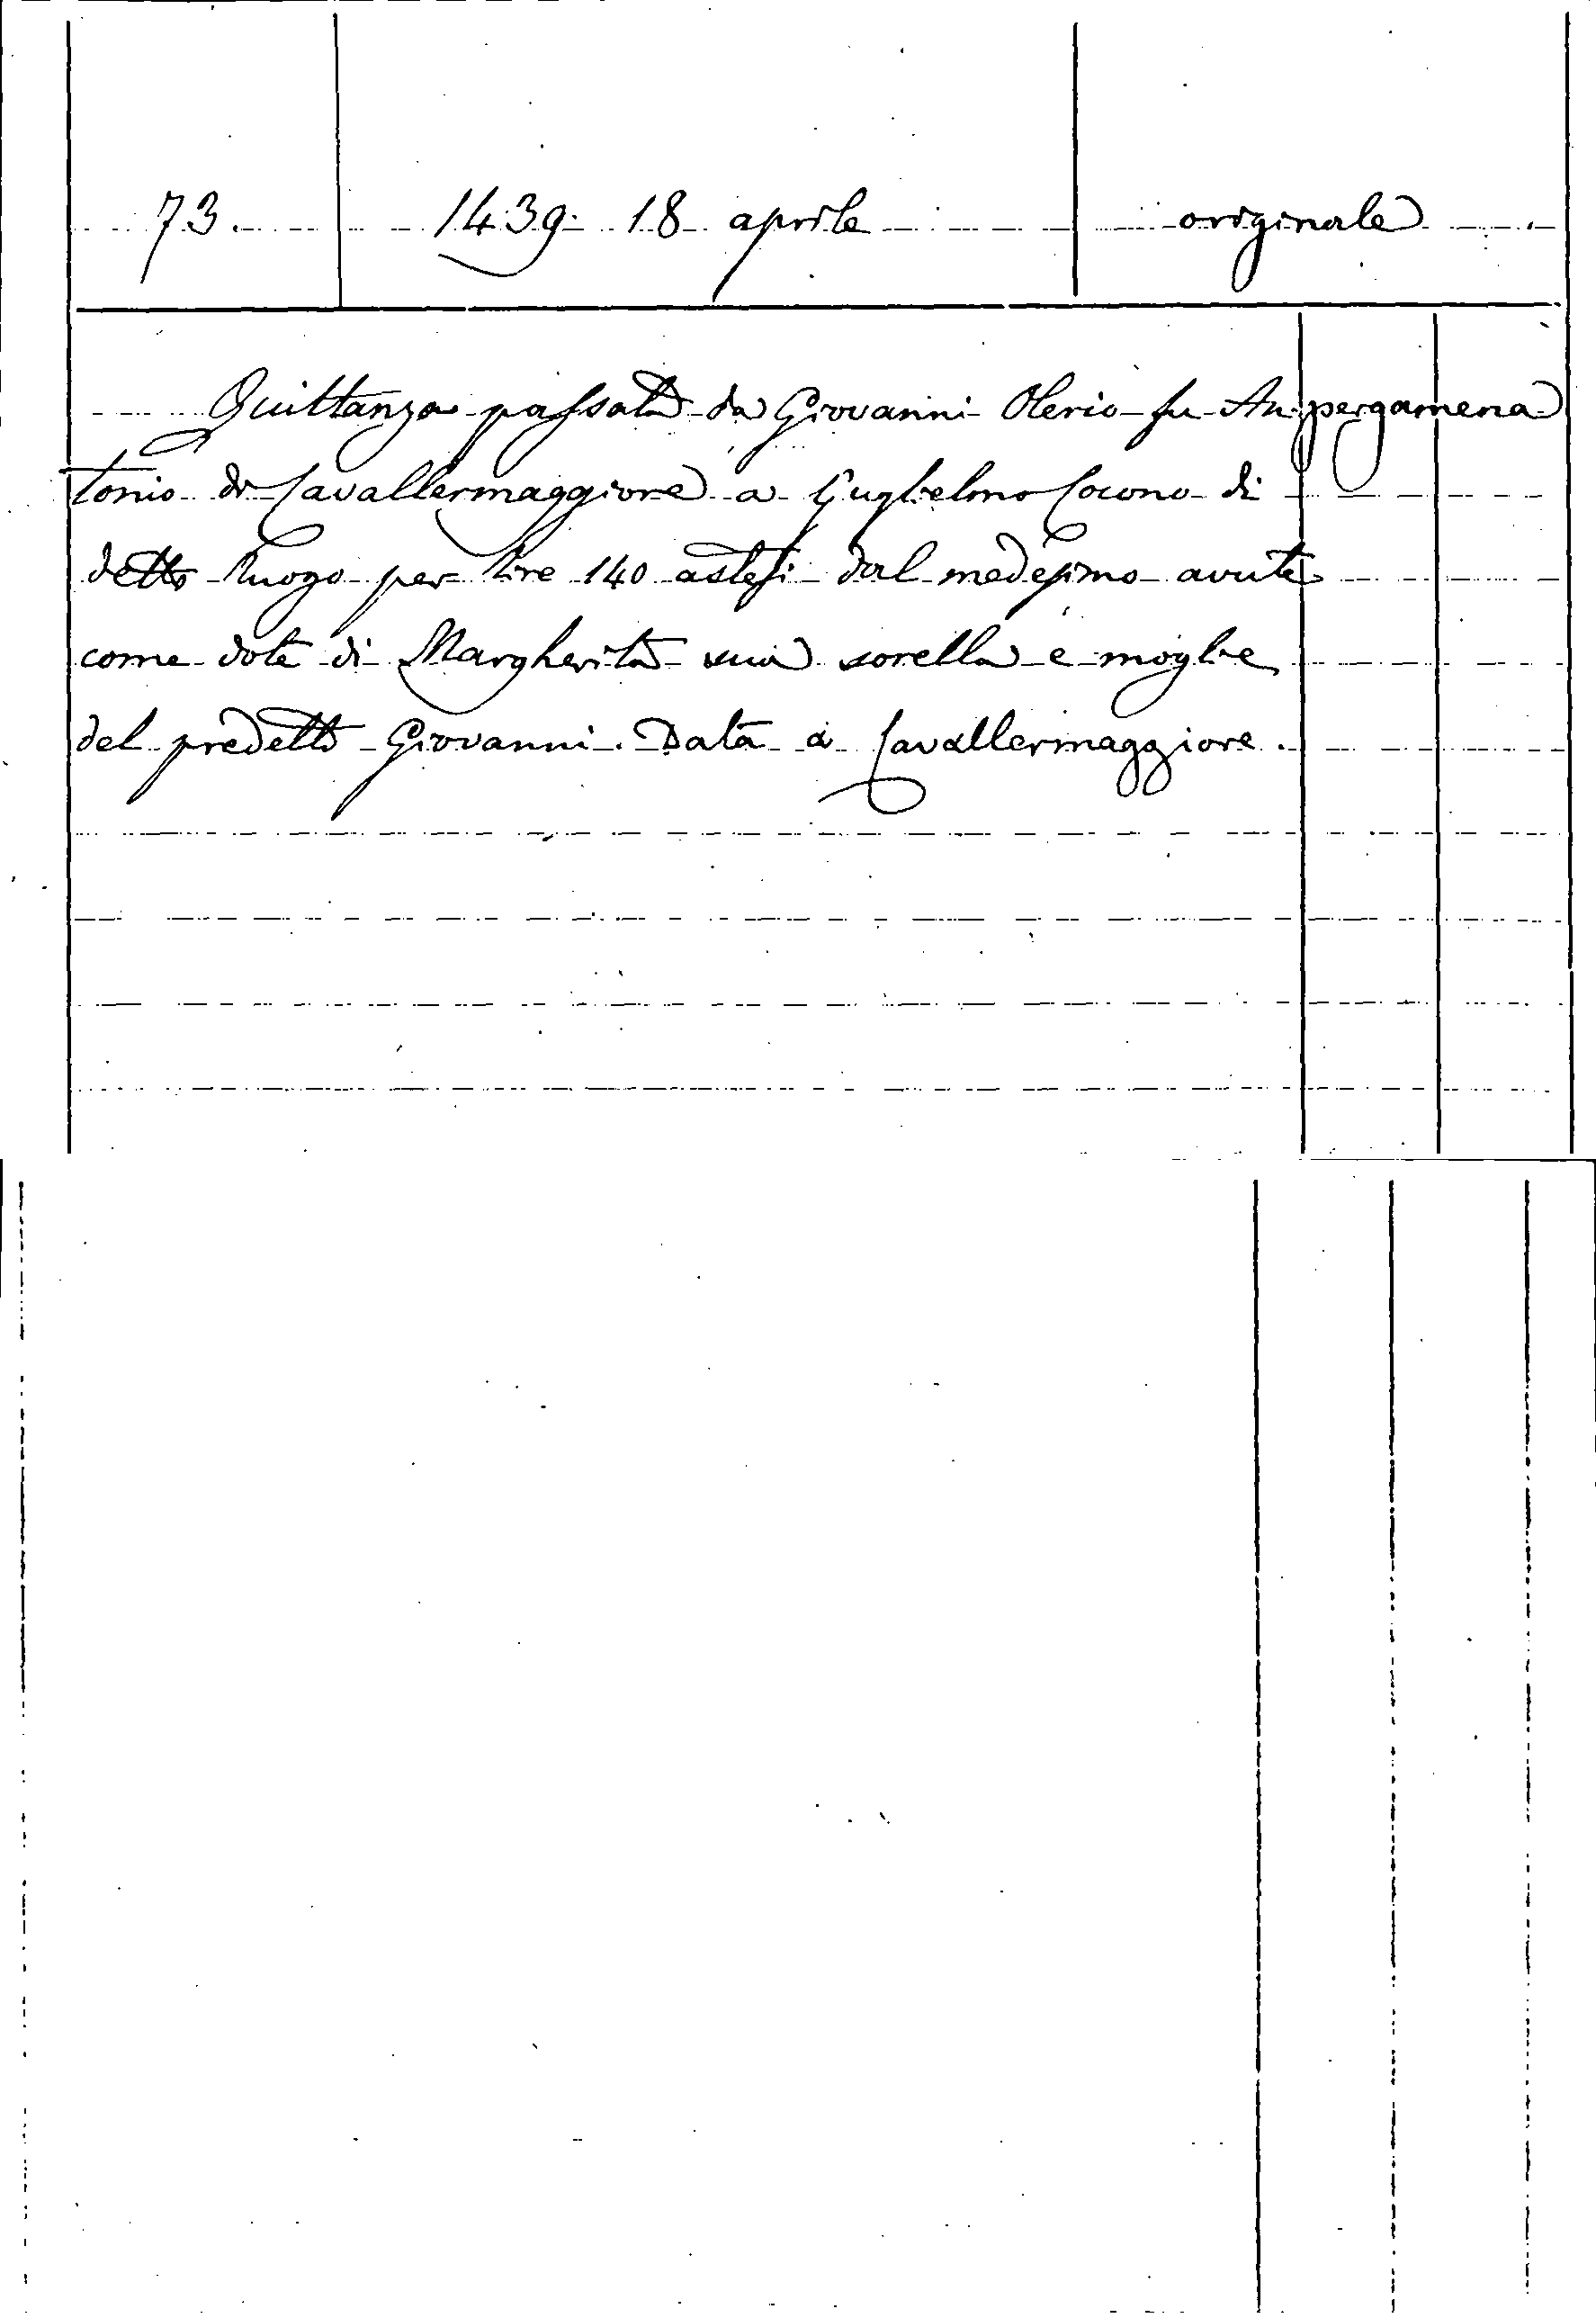 73. 1439. 18 aprile originale
Quittanza passata da Giovanni Olerio fu An pergamena
tonio di Cavallermaggiore a Guglielmo Cocono di
detto luogo per lire 140 astesi dal medesimo avute
come dote di Margherita sua sorella e moglie
del predetto Giovanni. Data a Cavallermaggiore.